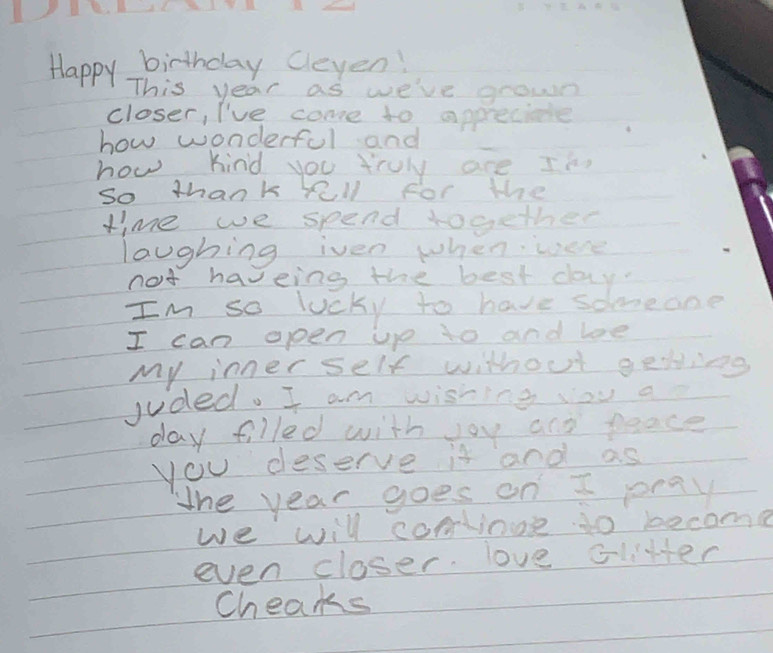 DREAM
YEARS
Happy birthday Cleyen!
This year as we've grown
closer, I've come to appreciate
how wonderful and
how kind you truly are I'm
so thank full for the
time we spend together
laughing iven when were
not haveing the best day.
IM so lucky to have someone
I can open up to and be
My inner self without getting
juded. I am wishing you a
day filled with joy and peace
you deserve it and as
the year goes on I pray
we will continue to become
even closer. love Glitter
Cheaks